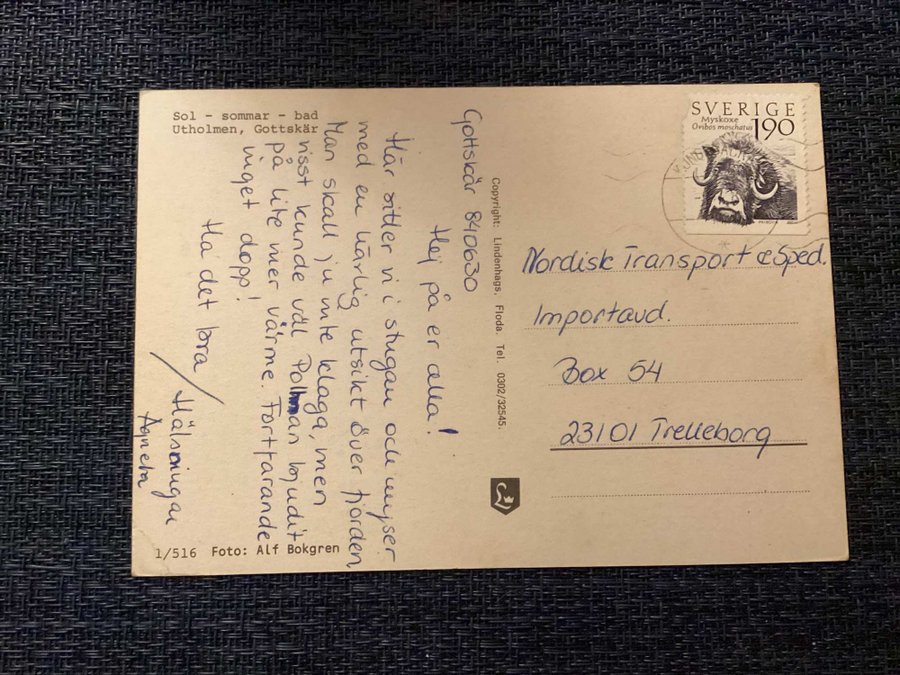 Sol - sommar - bad
Utholmen, Gottskär
Gottskär 840630
Hej på er alla!
Här sitter vi i stugan och myser
med en härlig utsikt över fjorden
Man skall ju inte klaga, men
nisst kunde väl Pollman bjudit
på lite mer värme. Fortfarande
inget dopp!
Ha det bra/Hälsningar
Agneta
1/516 Foto: Alf Bokgren
Copyright: Lindenhags, Floda. Tel. 0302/32545.
SVERIGE
Myskoxe
Ovibos moschatus
190
Nordisk Transport & Sped.
Importavd.
Box 54
23101 Trelleborg